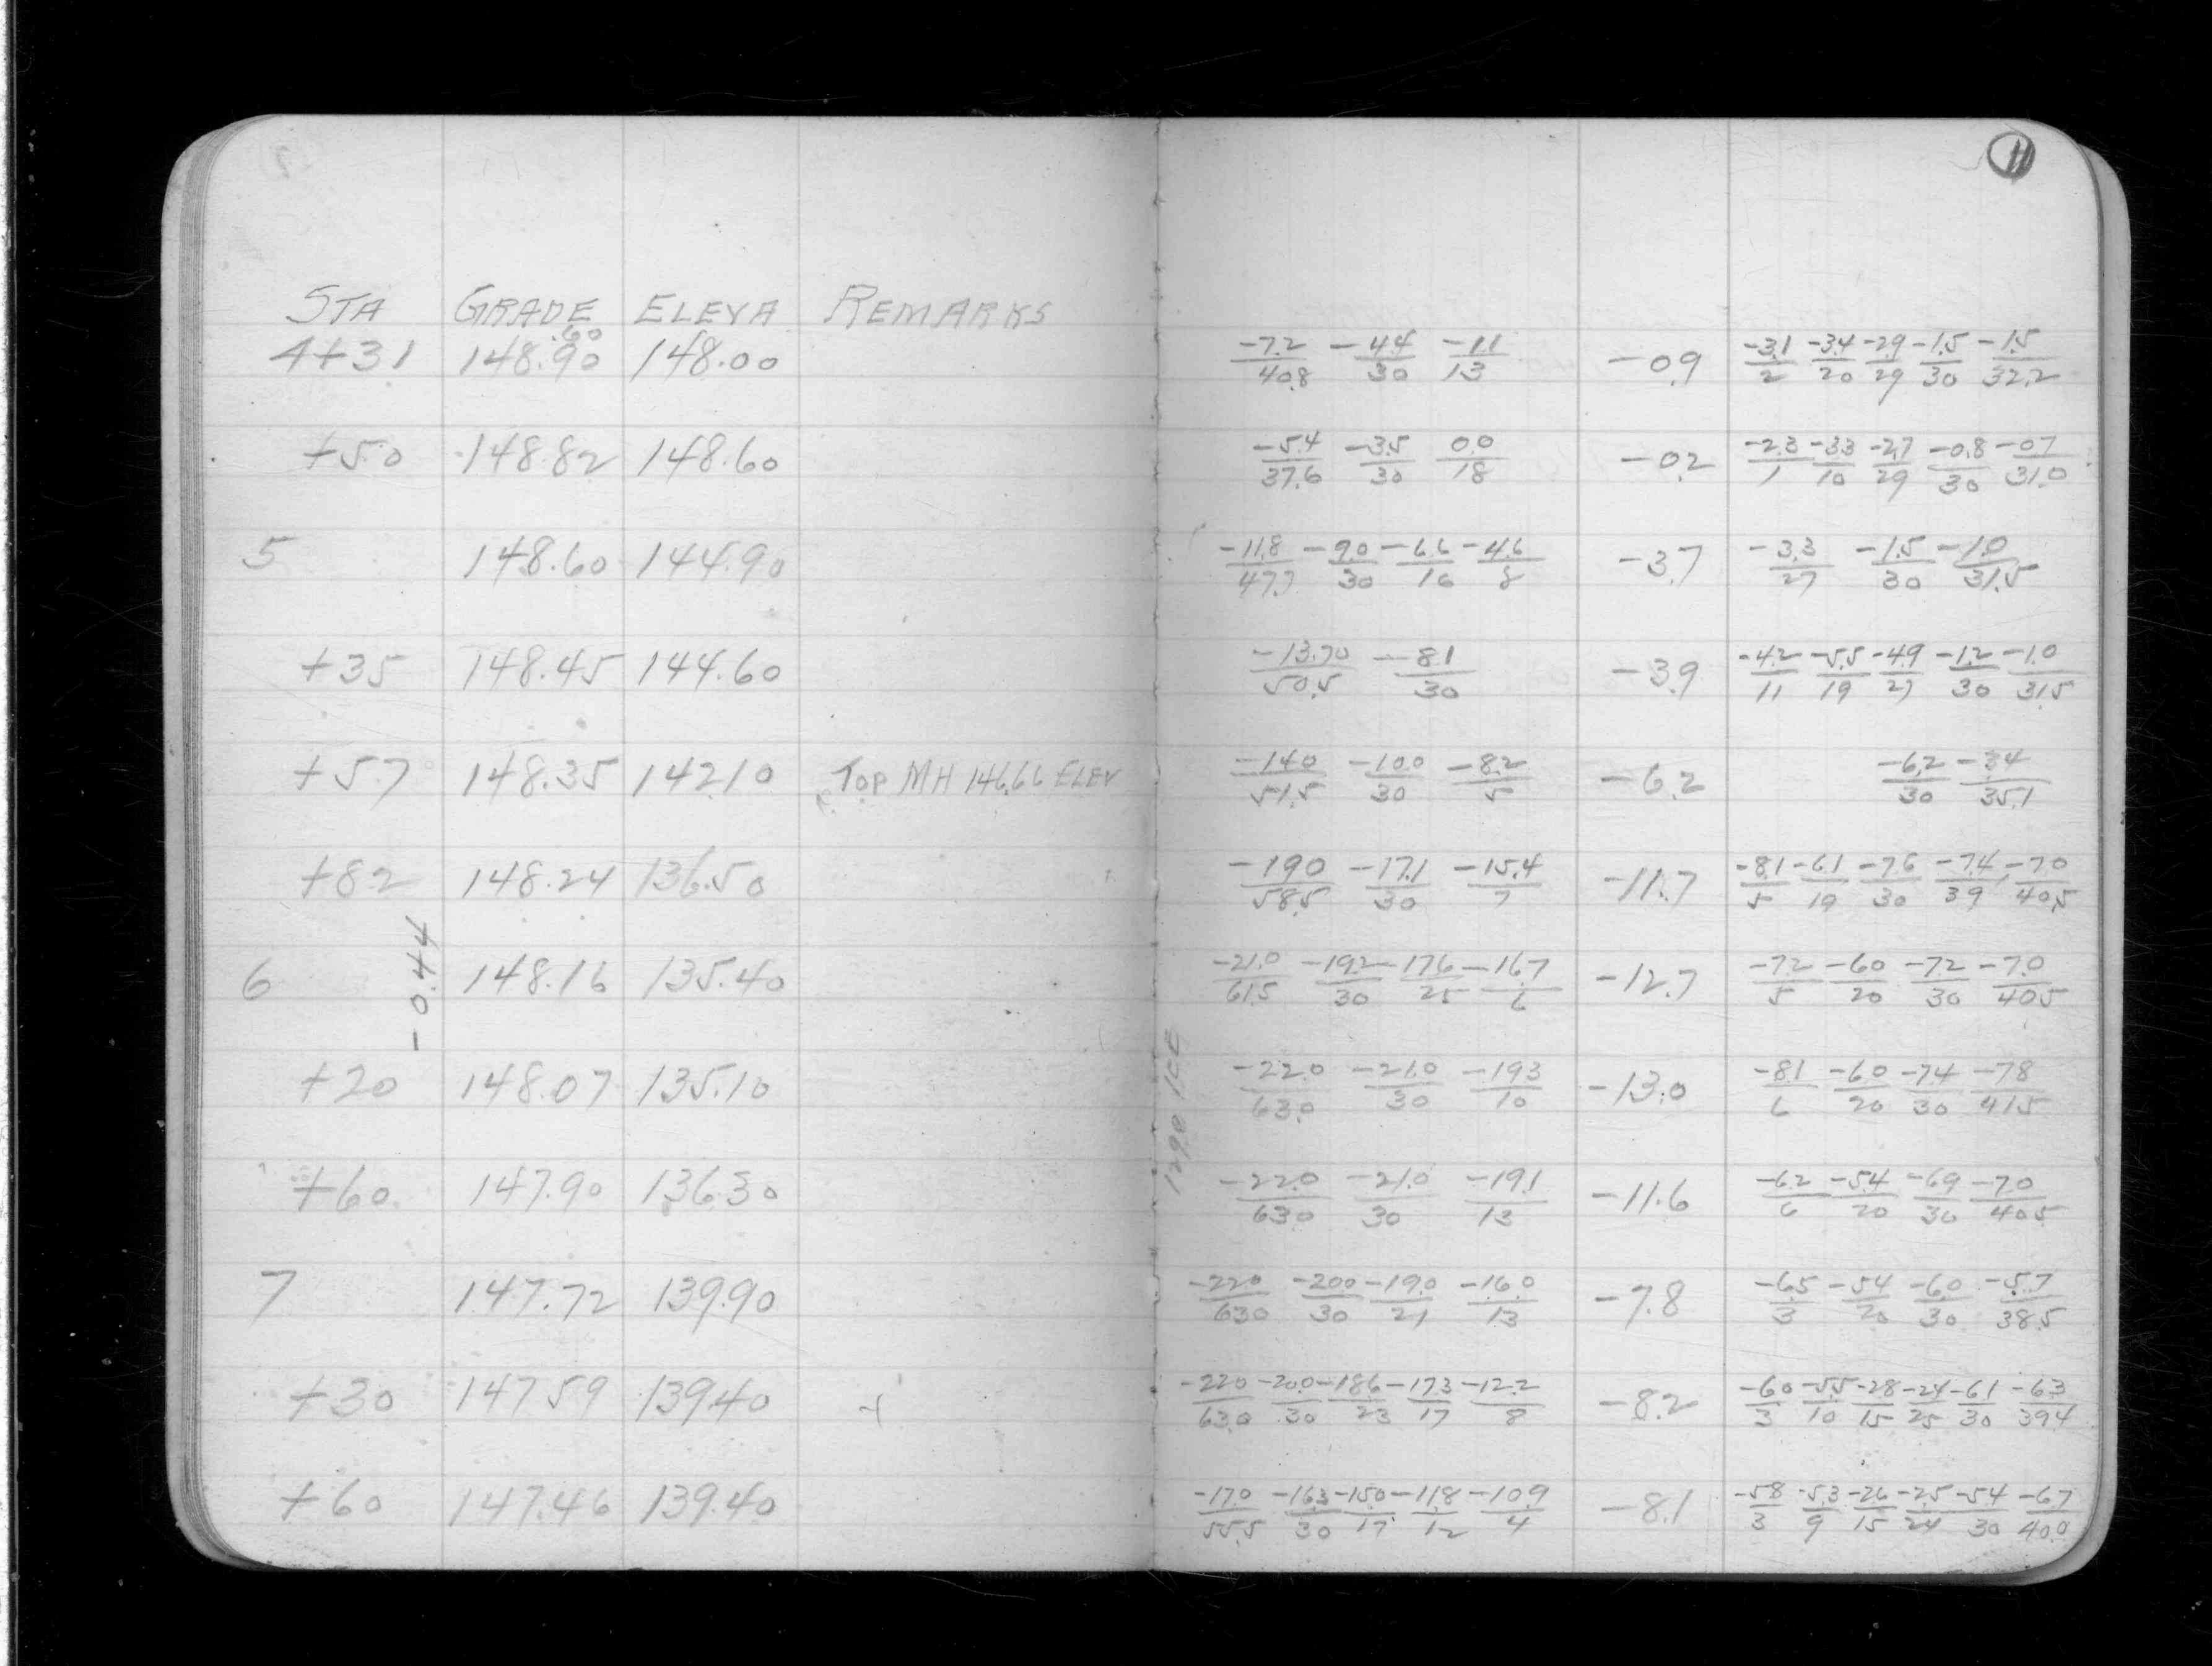 11
STA GRADE ELEVA REMARKS
.60
4+31 148.90 148.00 -7.2/40.8 -4.4/30 -1.1/13 -0.9 -3.1/2 -3.4/20 -2.9/29 -1.5/30 -1.5/32.2
+50 148.82 148.60 -5.4/37.6 -3.5/30 0.0/18 -0.2 -2.3/1 -3.3/10 -2.7/29 -0.8/30 -0.7/31.0
5 148.60 144.90 -11.8/47.7 -9.0/30 -6.6/16 -4.6/8 -3.7 -3.3/27 -1.5/30 -1.0/31.5
+35 148.45 144.60 -13.70/50.5 -8.1/30 -3.9 -4.2/11 -5.5/19 -4.9/27 -1.2/30 -1.0/31.5
+57 148.35 142.10 TOP MH 146.66 ELEV -14.0/51.5 -10.0/30 -8.2/5 -6.2 -6.2/30 -3.4/35.1
+82 148.24 136.50 -19.0/58.5 -17.1/30 -15.4/7 -11.7 -8.1/5 -6.1/19 -7.6/30 -7.4/39 -7.0/40.5
-0.44
6 148.16 135.40 -21.0/61.5 -19.2/30 -17.6/25 -16.7/6 -12.7 -7.2/5 -6.0/20 -7.2/30 -7.0/40.5
+20 148.07 135.10 -22.0/63.0 -21.0/30 -19.3/10 -13.0 -8.1/6 -6.0/20 -7.4/30 -7.8/41.5
+60 147.90 136.30 -22.0/63.0 -21.0/30 -19.1/13 -11.6 -6.2/6 -5.4/20 -6.9/30 -7.0/40.5
7 147.72 139.90 -22.0/63.0 -20.0/30 -19.0/21 -16.0/13 -7.8 -6.5/3 -5.4/20 -6.0/30 -5.7/38.5
+30 147.59 139.40 -22.0/63.0 -20.0/30 -18.6/23 -17.3/17 -12.2/8 -8.2 -6.0/3 -5.5/10 -2.8/15 -2.4/25 -6.1/30 -6.3/39.4
+60 147.46 139.40 -17.0/55.5 -16.3/30 -15.0/17 -11.8/12 -10.9/4 -8.1 -5.8/3 -5.3/9 -2.6/15 -2.5/24 -5.4/30 -6.7/40.0